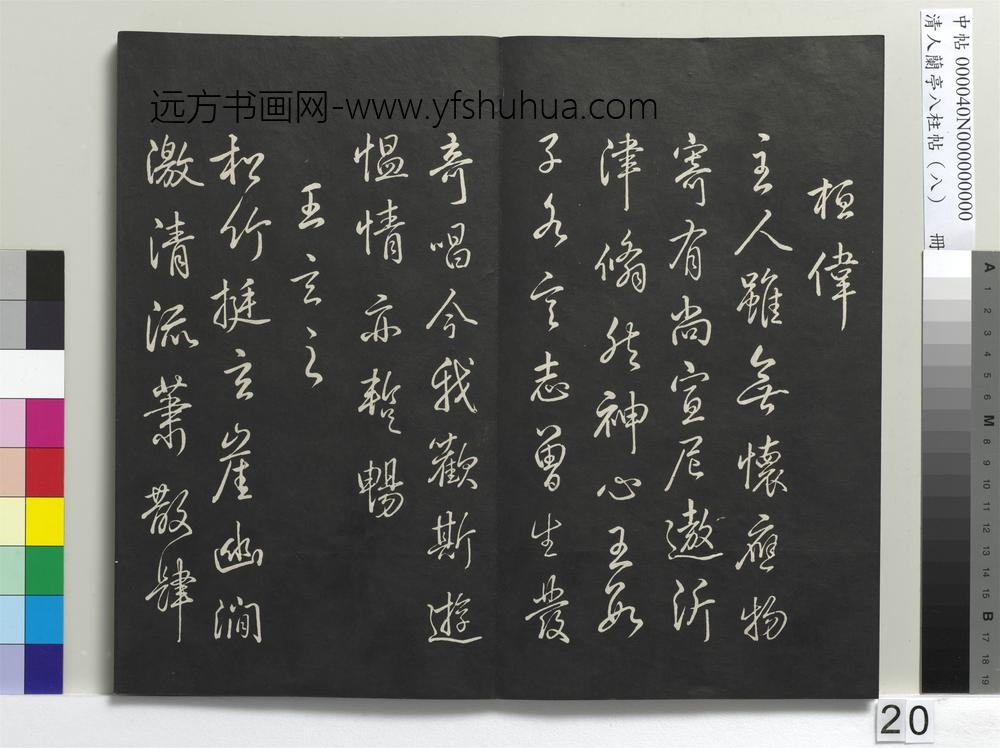 远方书画网-www.yfshuhua.com
中帖 000040N000000000
清人蘭亭八柱帖（八） 冊
桓偉
主人雖無懷應物
寄有尚宣尼遨沂
津翛然神心王數
子各言志曾生發
奇唱今我歡斯遊
慍情亦暫暢
王玄之
松竹挺玄崖幽澗
激清流蕭散肆
A 1 2 3 4 5 6 M 8 9 10 11 12 13 14 15 B 17 18 19
20